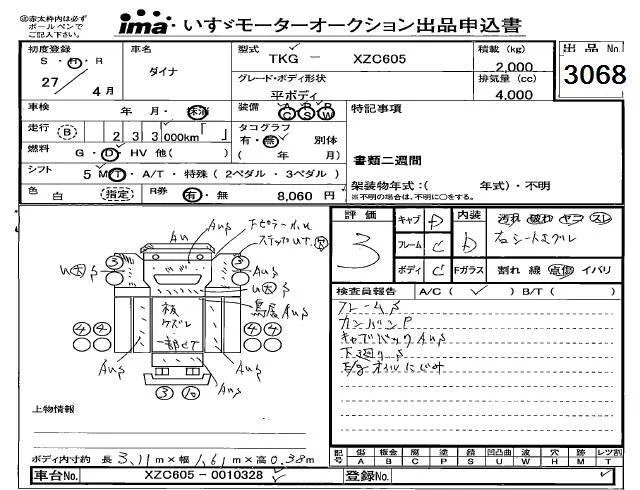 ㊟赤太枠内は必ず
ボールペンで
ご記入下さい。
ima いすゞモーターオークション出品申込書
初度登録
S・H・R
27 4月
車名
ダイナ
型式
TKG － XZC605
グレード・ボディ形状
平ボディ
積載 (kg)
2,000
排気量 (cc)
4,000
出品 No.
3068
車検 年 月・抹消
装備 A C R S R W
走行 B 2 3 3 000km「 」
タコグラフ
有・無 別体
( 年 月)
燃料 G・D・HV 他( )
シフト 5 MT・A/T・特殊 (2ペダル・3ペダル)
色 白 (指定) R券 有・無 8,060 円
特記事項
書類二週間
架装物年式：( 年式)・不明
※不明の場合は、不明に○をする。
評価
3
キャブ D
フレーム C
ボディ C
内装 D
汚れ 破れ ヤニ スレ
右シートスグレ
Fガラス 割れ 線 点傷 イバリ
検査員報告 A/C ( ✓ ) B/T ( )
フレームS
カンバンP
キャブバックAUS
下廻りS
E/gオイルにじみ
AU
AUS
下ピラーホル
ステップUT
U大S
AUS
U大S
鳥居AUS
板
ケズレ
一部せて
AUS
AUS
AUS
3 3
4 4 4 4
3 10
上物情報
ボディ内寸約 長 3.11m×幅 1.61m×高 0.38m
記号 傷 A 板金 B 腐 C 塗 P 錆 S 凹凸曲 U 波 W 穴 H 跡 M レツ割 T
車台No. XZC605－0010328
登録No.